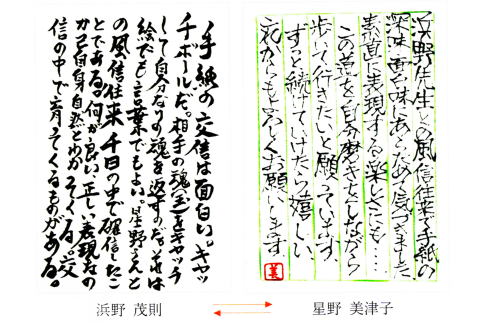 浜野先生との風信往来で手紙の
深味・面白味にあらためて気づきました。
素直に表現する楽しさも…
この夢を自分磨きをしながら
歩いて行きたいと願っています。
ずっと続けていけたら嬉しい
これからも宜しくお願いします
美
手紙の交信は面白い。キャッ
チボールだ。相手の魂(玉)をキャッチ
して自分なりの魂を返すのだ。それは
絵でも言葉でもよい。星野さんと
の風信往来 千日の中で確信したこ
とである。何が良い、正しい表現なの
かご自身自然とわかってくる。交
信の中で育ってくるものがある。
浜野 茂則
星野 美津子